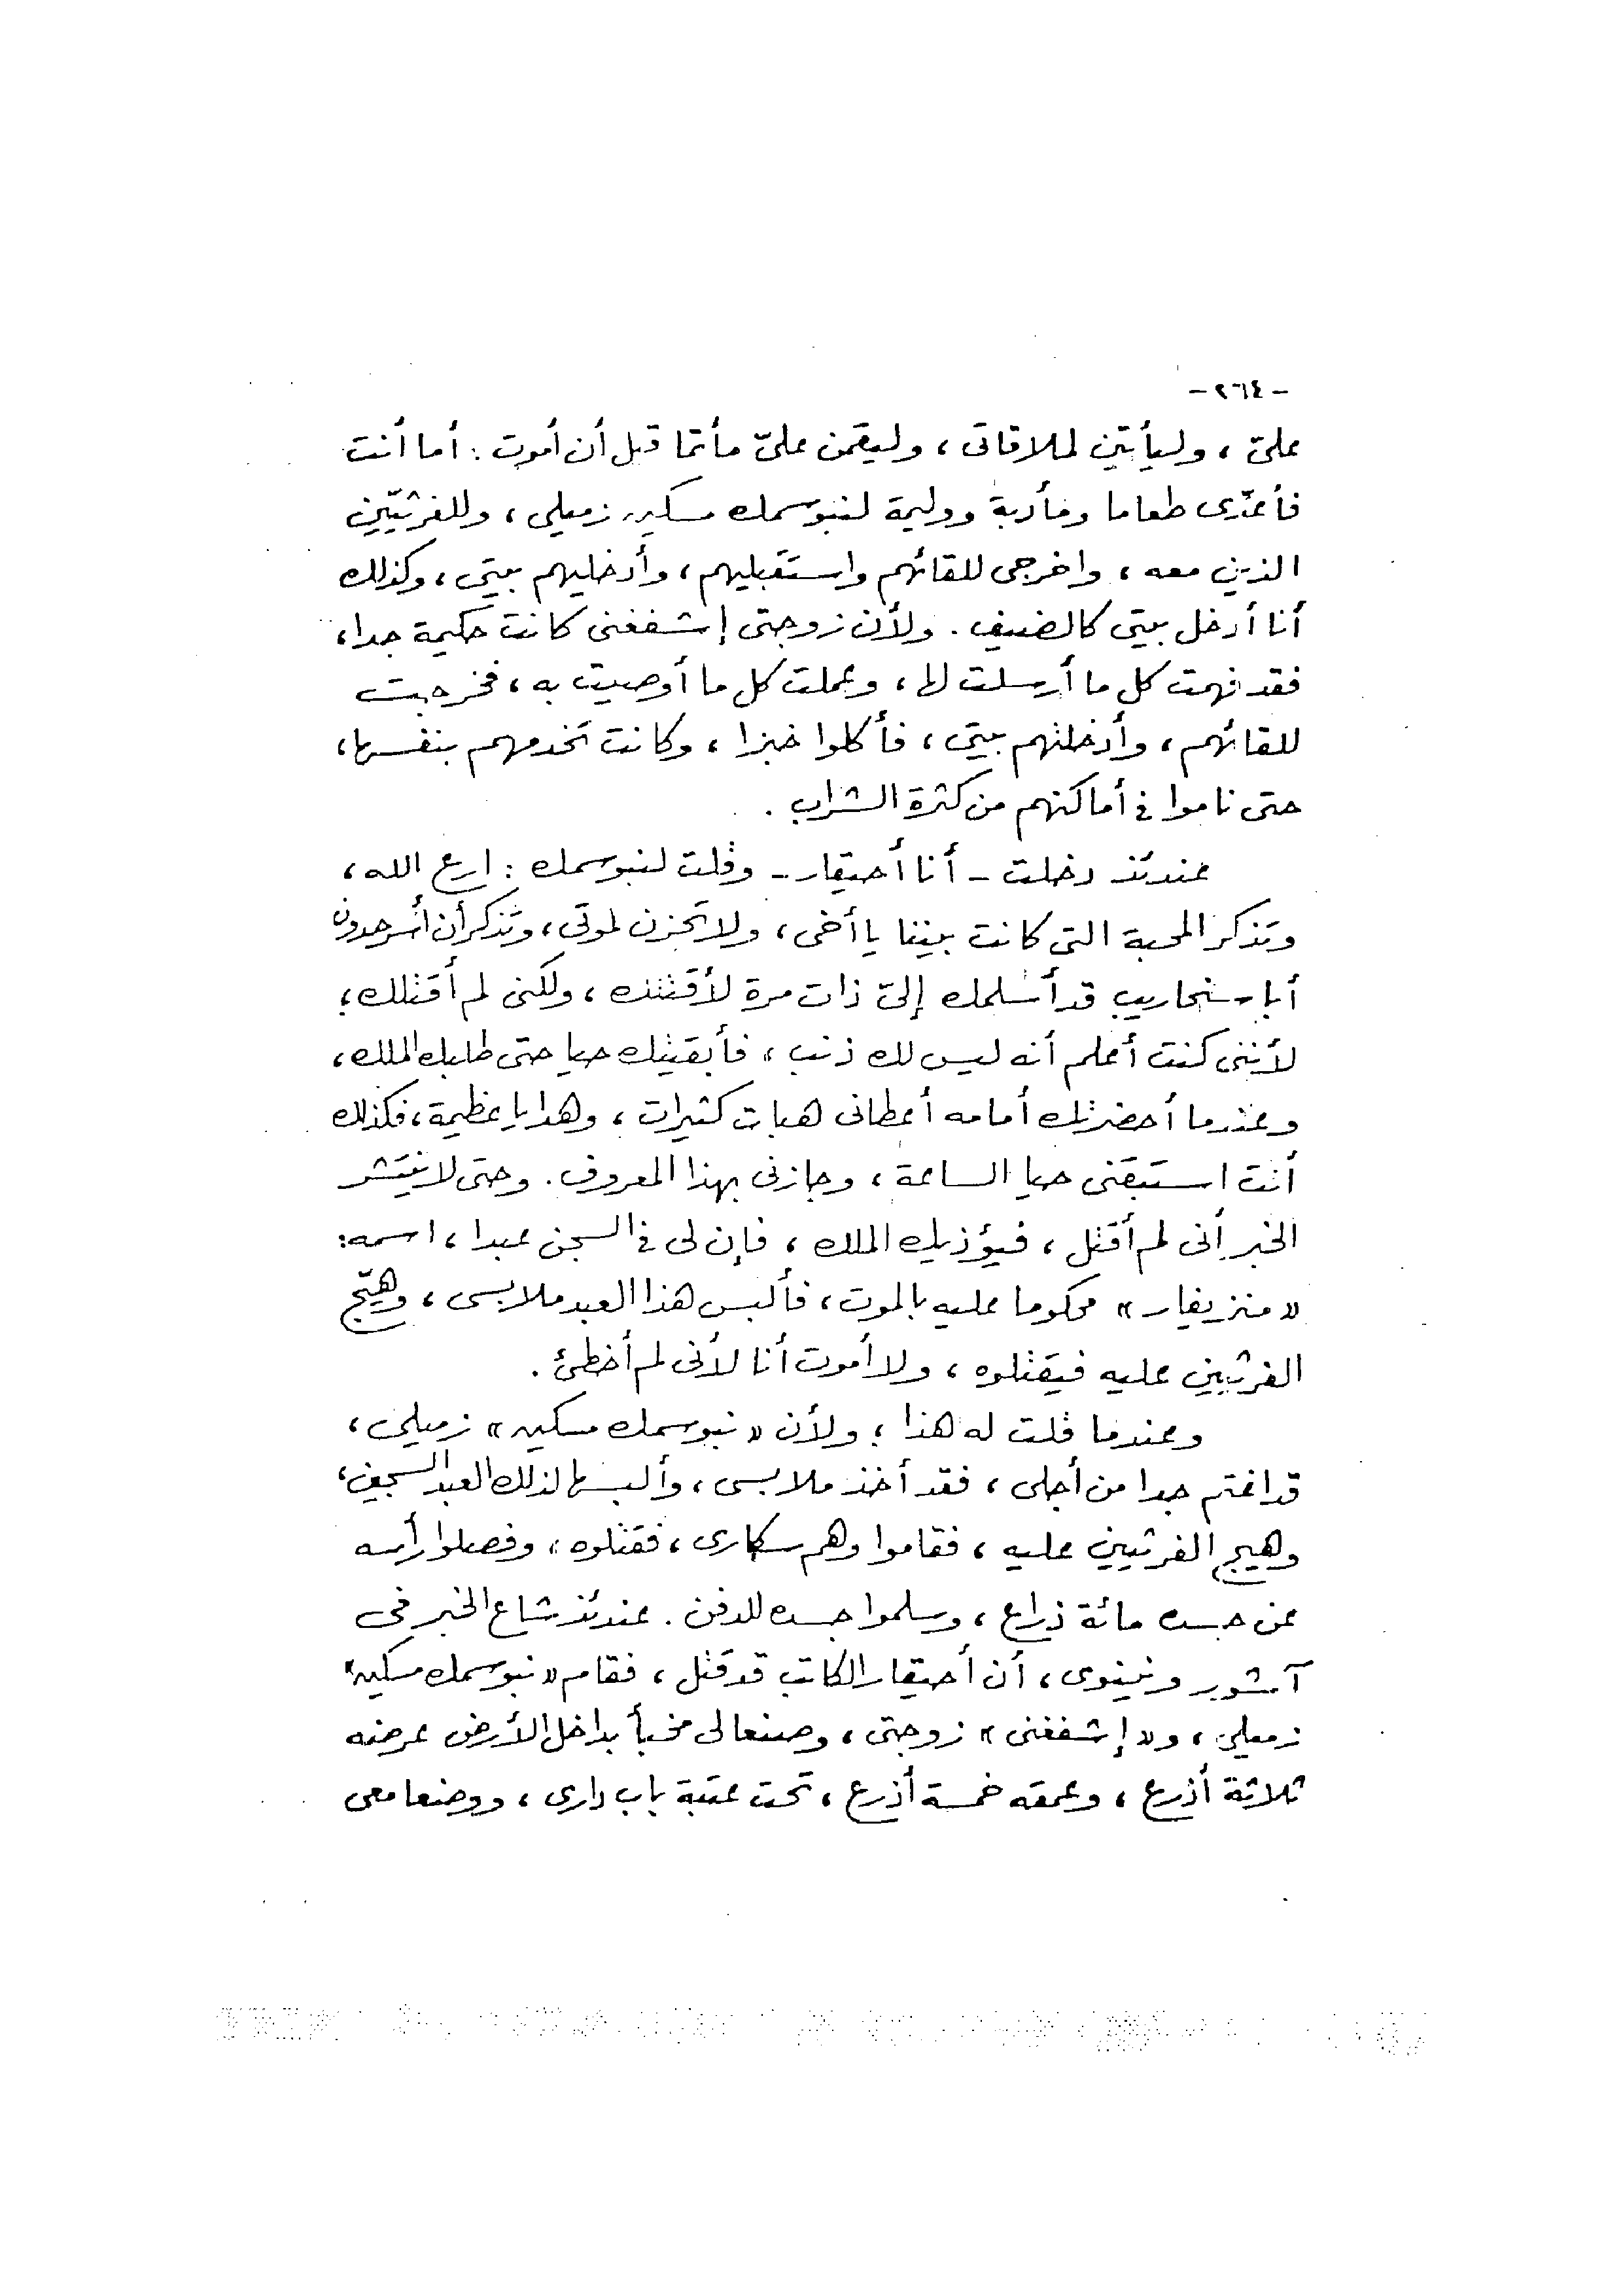 - ٢٦٤ -
علىّ ، وليأتين لملاقاتى ، وليقمن علىّ مأتما قبل أن أموت : أما أنت
فأعدّى طعاما ومأدبة ووليمة لنبوسمك مسكين زميلى ، وللفرثيّين
الذين معه ، واخرجى للقائهم واستقبليهم ، وأدخليهم بيتى ، وكذلك
أنا أدخل بيتى كالضيف . ولأن زوجتى إشفغنى كانت حكيمة جدا ،
فقد فهمت كل ما أرسلت لها ، وعملت كل ما أوصيت به ، فخرجت
للقائهم ، وأدخلتهم بيتى ، فأكلوا خبزا ، وكانت تخدمهم بنفسها ،
حتى ناموا فى أماكنهم من كثرة الشراب .
عندئذ دخلت - أنا أحيقار - وقلت لنبوسمك : ارع الله ،
وتذكر المحبة التى كانت بيننا يا أخى ، ولا تحزن لموتى ، وتذكر أن أسرحدون
أبا سنحاريب قد أسلمك إلىّ ذات مرة لأقتلك ، ولكنى لم أقتلك ؛
لأننى كنت أعلم أنه ليس لك ذنب ، فأبقيتك حيا حتى طلبك الملك ،
وعندما أحضرتك أمامه أعطانى هبات كثيرات ، وهدايا عظيمة ، فكذلك
أنت استبقنى حيا الساعة ، وجازنى بهذا المعروف . وحتى لا ينتشر
الخبر أنى لم أقتل ، فيؤذيك الملك ، فإن لى فى السجن عبدا ، اسمه :
« منزيفار » محكوما عليه بالموت ، فألبس هذا العبد ملابسى ، وهيّج
الفرثيين عليه فيقتلوه ، ولا أموت أنا لأنى لم أخطئ .
وعندما قلت له هذا ؛ ولأن « نبوسمك مسكين » زميلى ،
قد اغتم جدا من أجلى ، فقد أخذ ملابسى ، وألبسها لذلك العبد السجين ،
وهيج الفرثيين عليه ، فقاموا وهم سكارى ، فقتلوه ، وفصلوا رأسه
عن جسده مائة ذراع ، وسلموا جسده للدفن . عندئذ شاع الخبر فى
آشور ونينوى ، أن أحيقار الكاتب قد قتل ، فقام « نبوسمك مسكين »
زميلى ، و « إشفغنى » زوجتى ، وصنعا لى مخبأ بداخل الأرض عرضه
ثلاثة أذرع ، وعمقه خمسة أذرع ، تحت عتبة باب دارى ، ووضعا معى